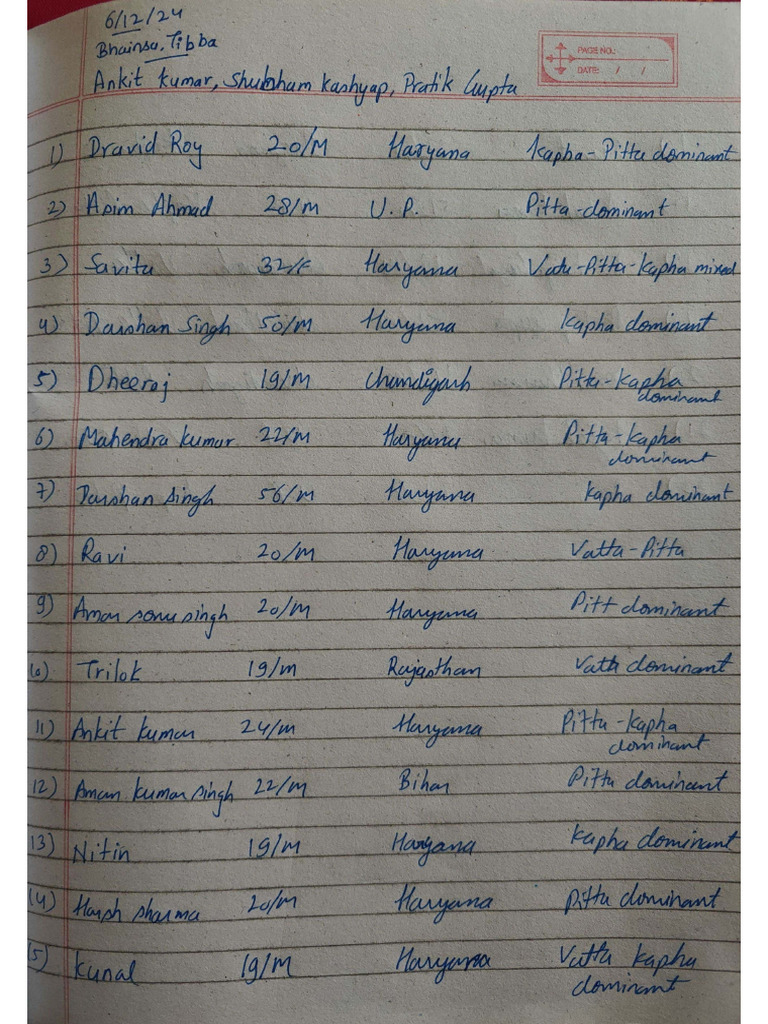 6/12/24
Bhainsa, Tibba
Ankit Kumar, Shubham Kashyap, Pratik Gupta
PAGE NO.:
DATE: / /
1) Dravid Roy 20/M Haryana Kapha-Pitta dominant
2) Asim Ahmad 28/M U.P. Pitta-dominant
3) Savita 32/F Haryana Vata-Pitta-Kapha mixed
4) Darshan Singh 50/M Haryana Kapha dominant
5) Dheeraj 19/M Chandigarh Pitta-Kapha
dominant
6) Mahendra Kumar 22/M Haryana Pitta-Kapha
dominant
7) Darshan Singh 56/M Haryana Kapha dominant
8) Ravi 20/M Haryana Vatta-Pitta
9) Aman sonu singh 20/M Haryana Pitt dominant
10) Trilok 19/M Rajasthan Vatta dominant
11) Ankit Kumar 24/M Haryana Pitta-Kapha
dominant
12) Aman Kumar singh 22/M Bihar Pitta dominant
13) Nitin 19/M Haryana Kapha dominant
14) Harsh sharma 20/M Haryana Pitta dominant
15) Kunal 19/M Haryana Vatta Kapha
dominant